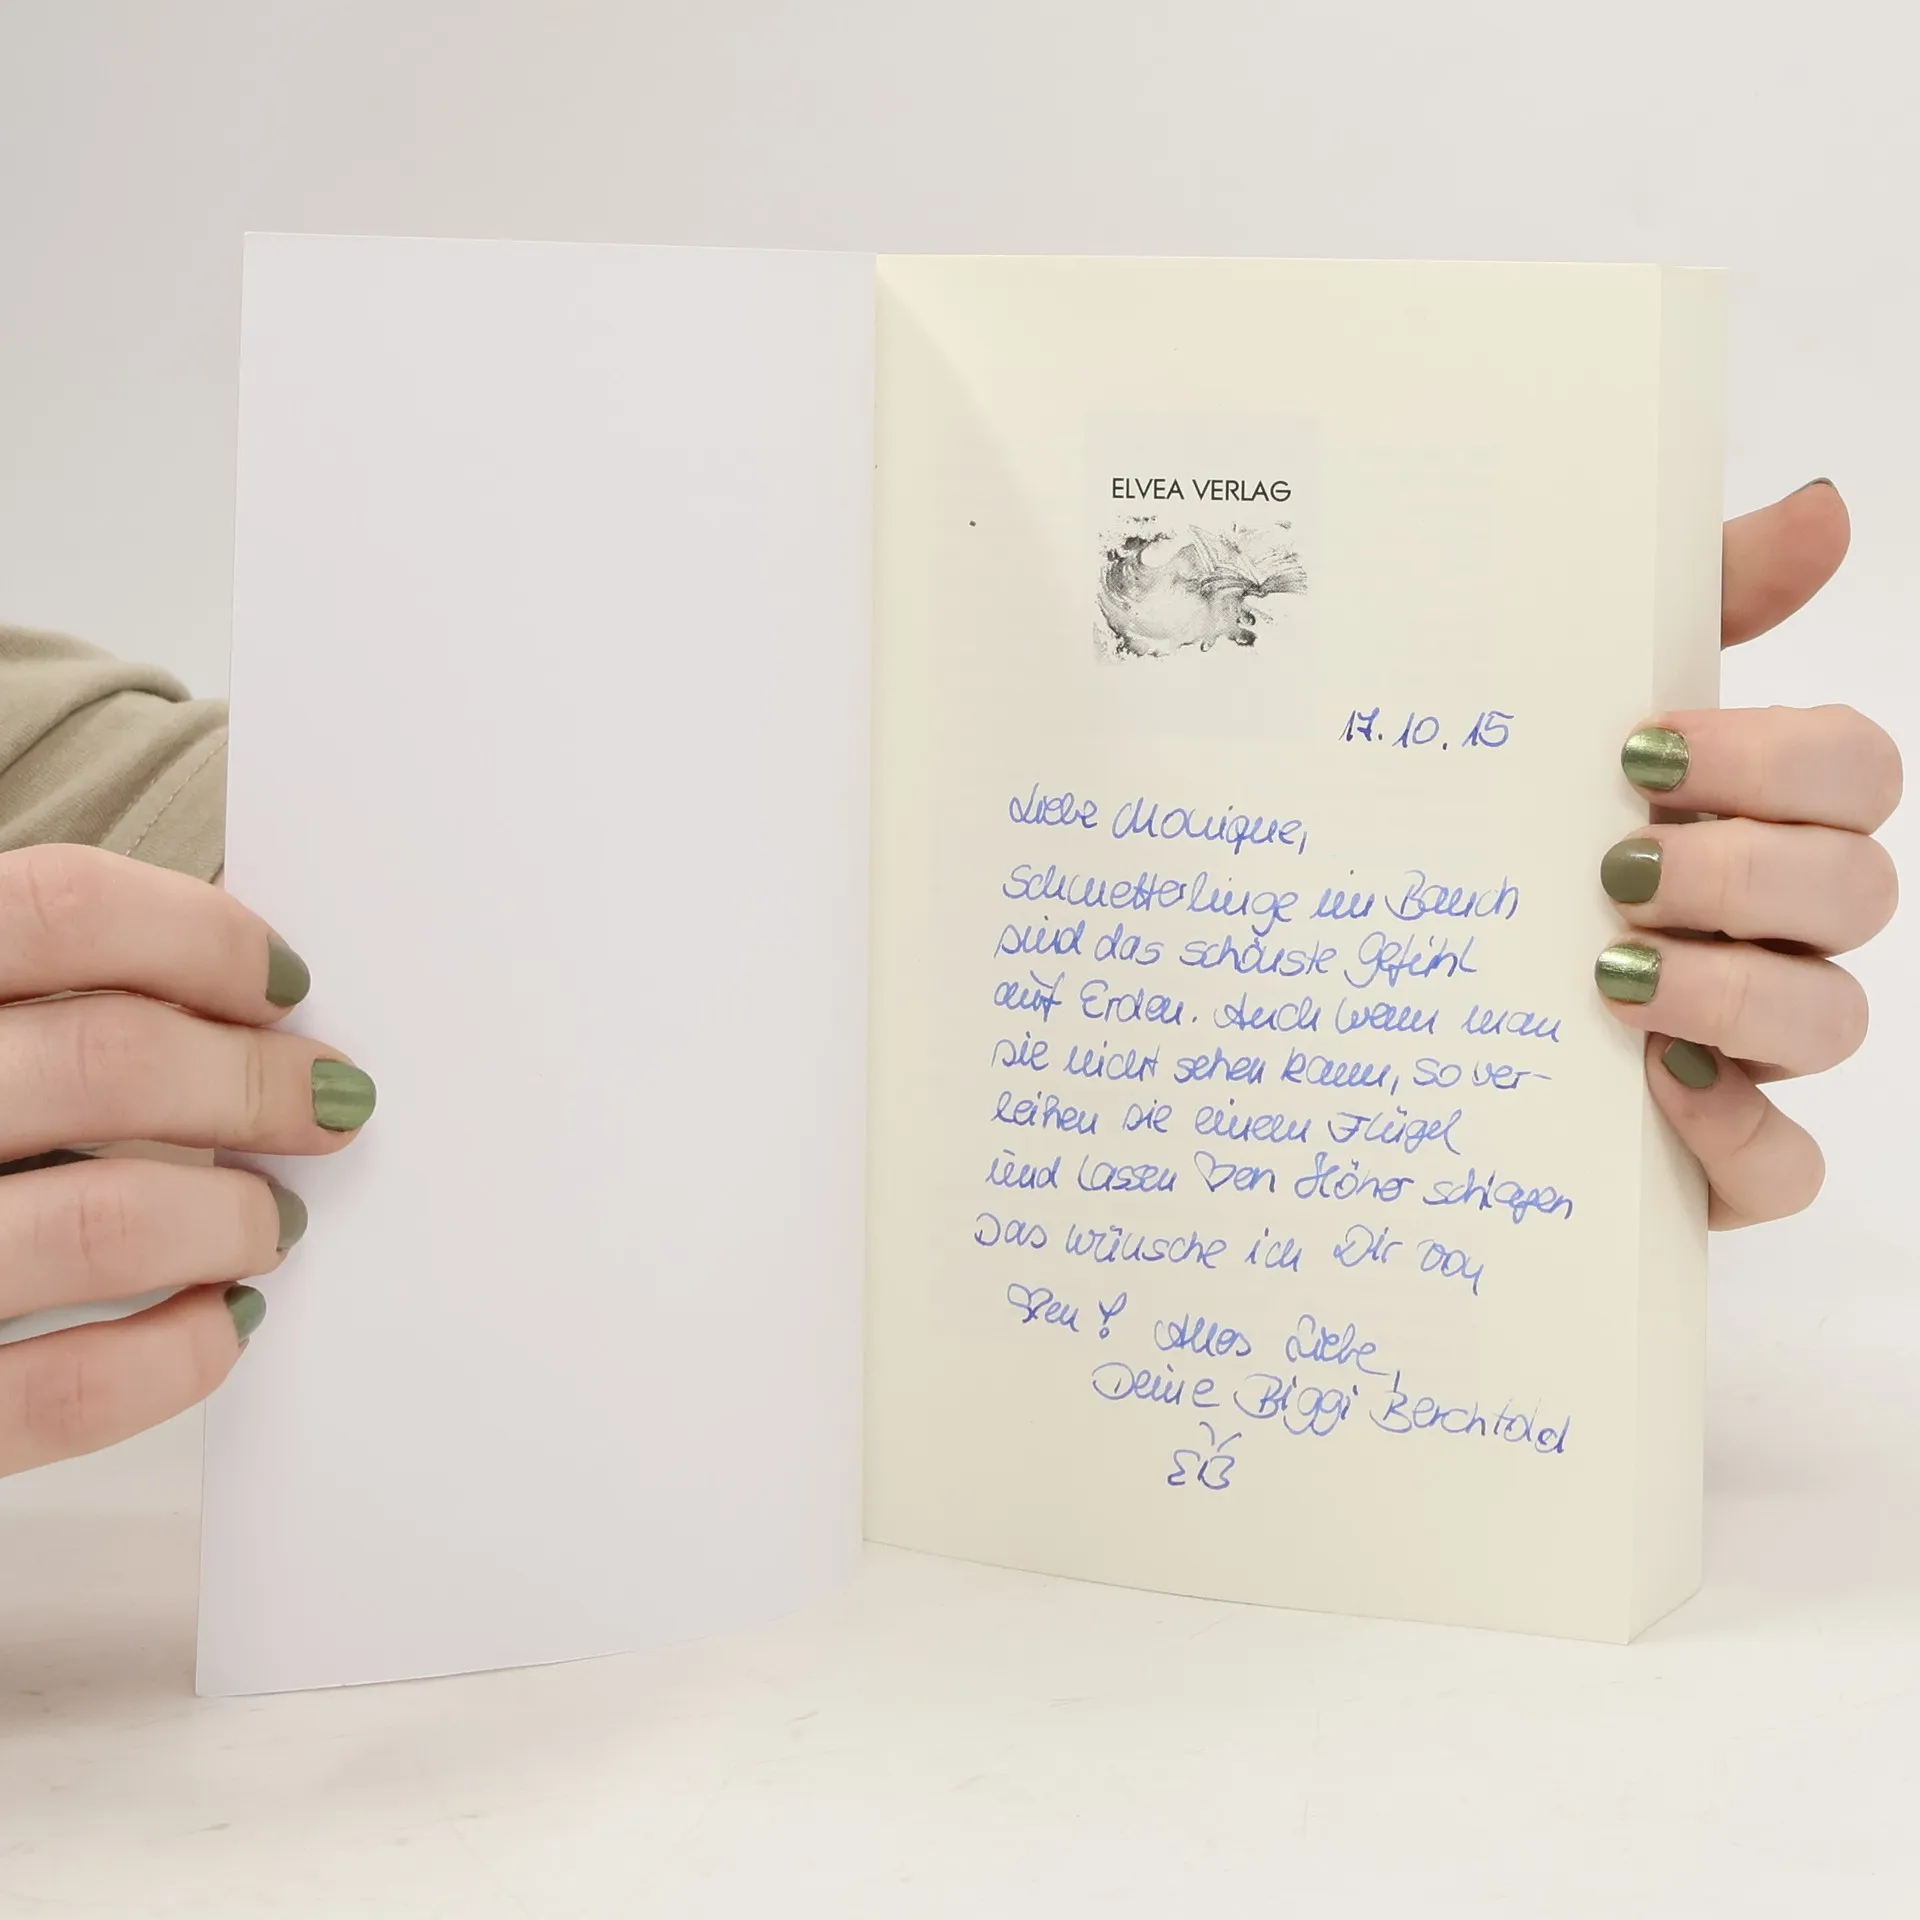 ELVEA VERLAG
17.10.15
Liebe Monique,
Schmetterlinge im Bauch
sind das schönste Gefühl
auf Erden. Auch wenn man
sie nicht sehen kann, so ver-
leihen sie einem Flügel
und lassen ♡en Höher schlagen
Das wünsche ich Dir von
♡en! Alles Liebe,
Deine Biggi Berchtold